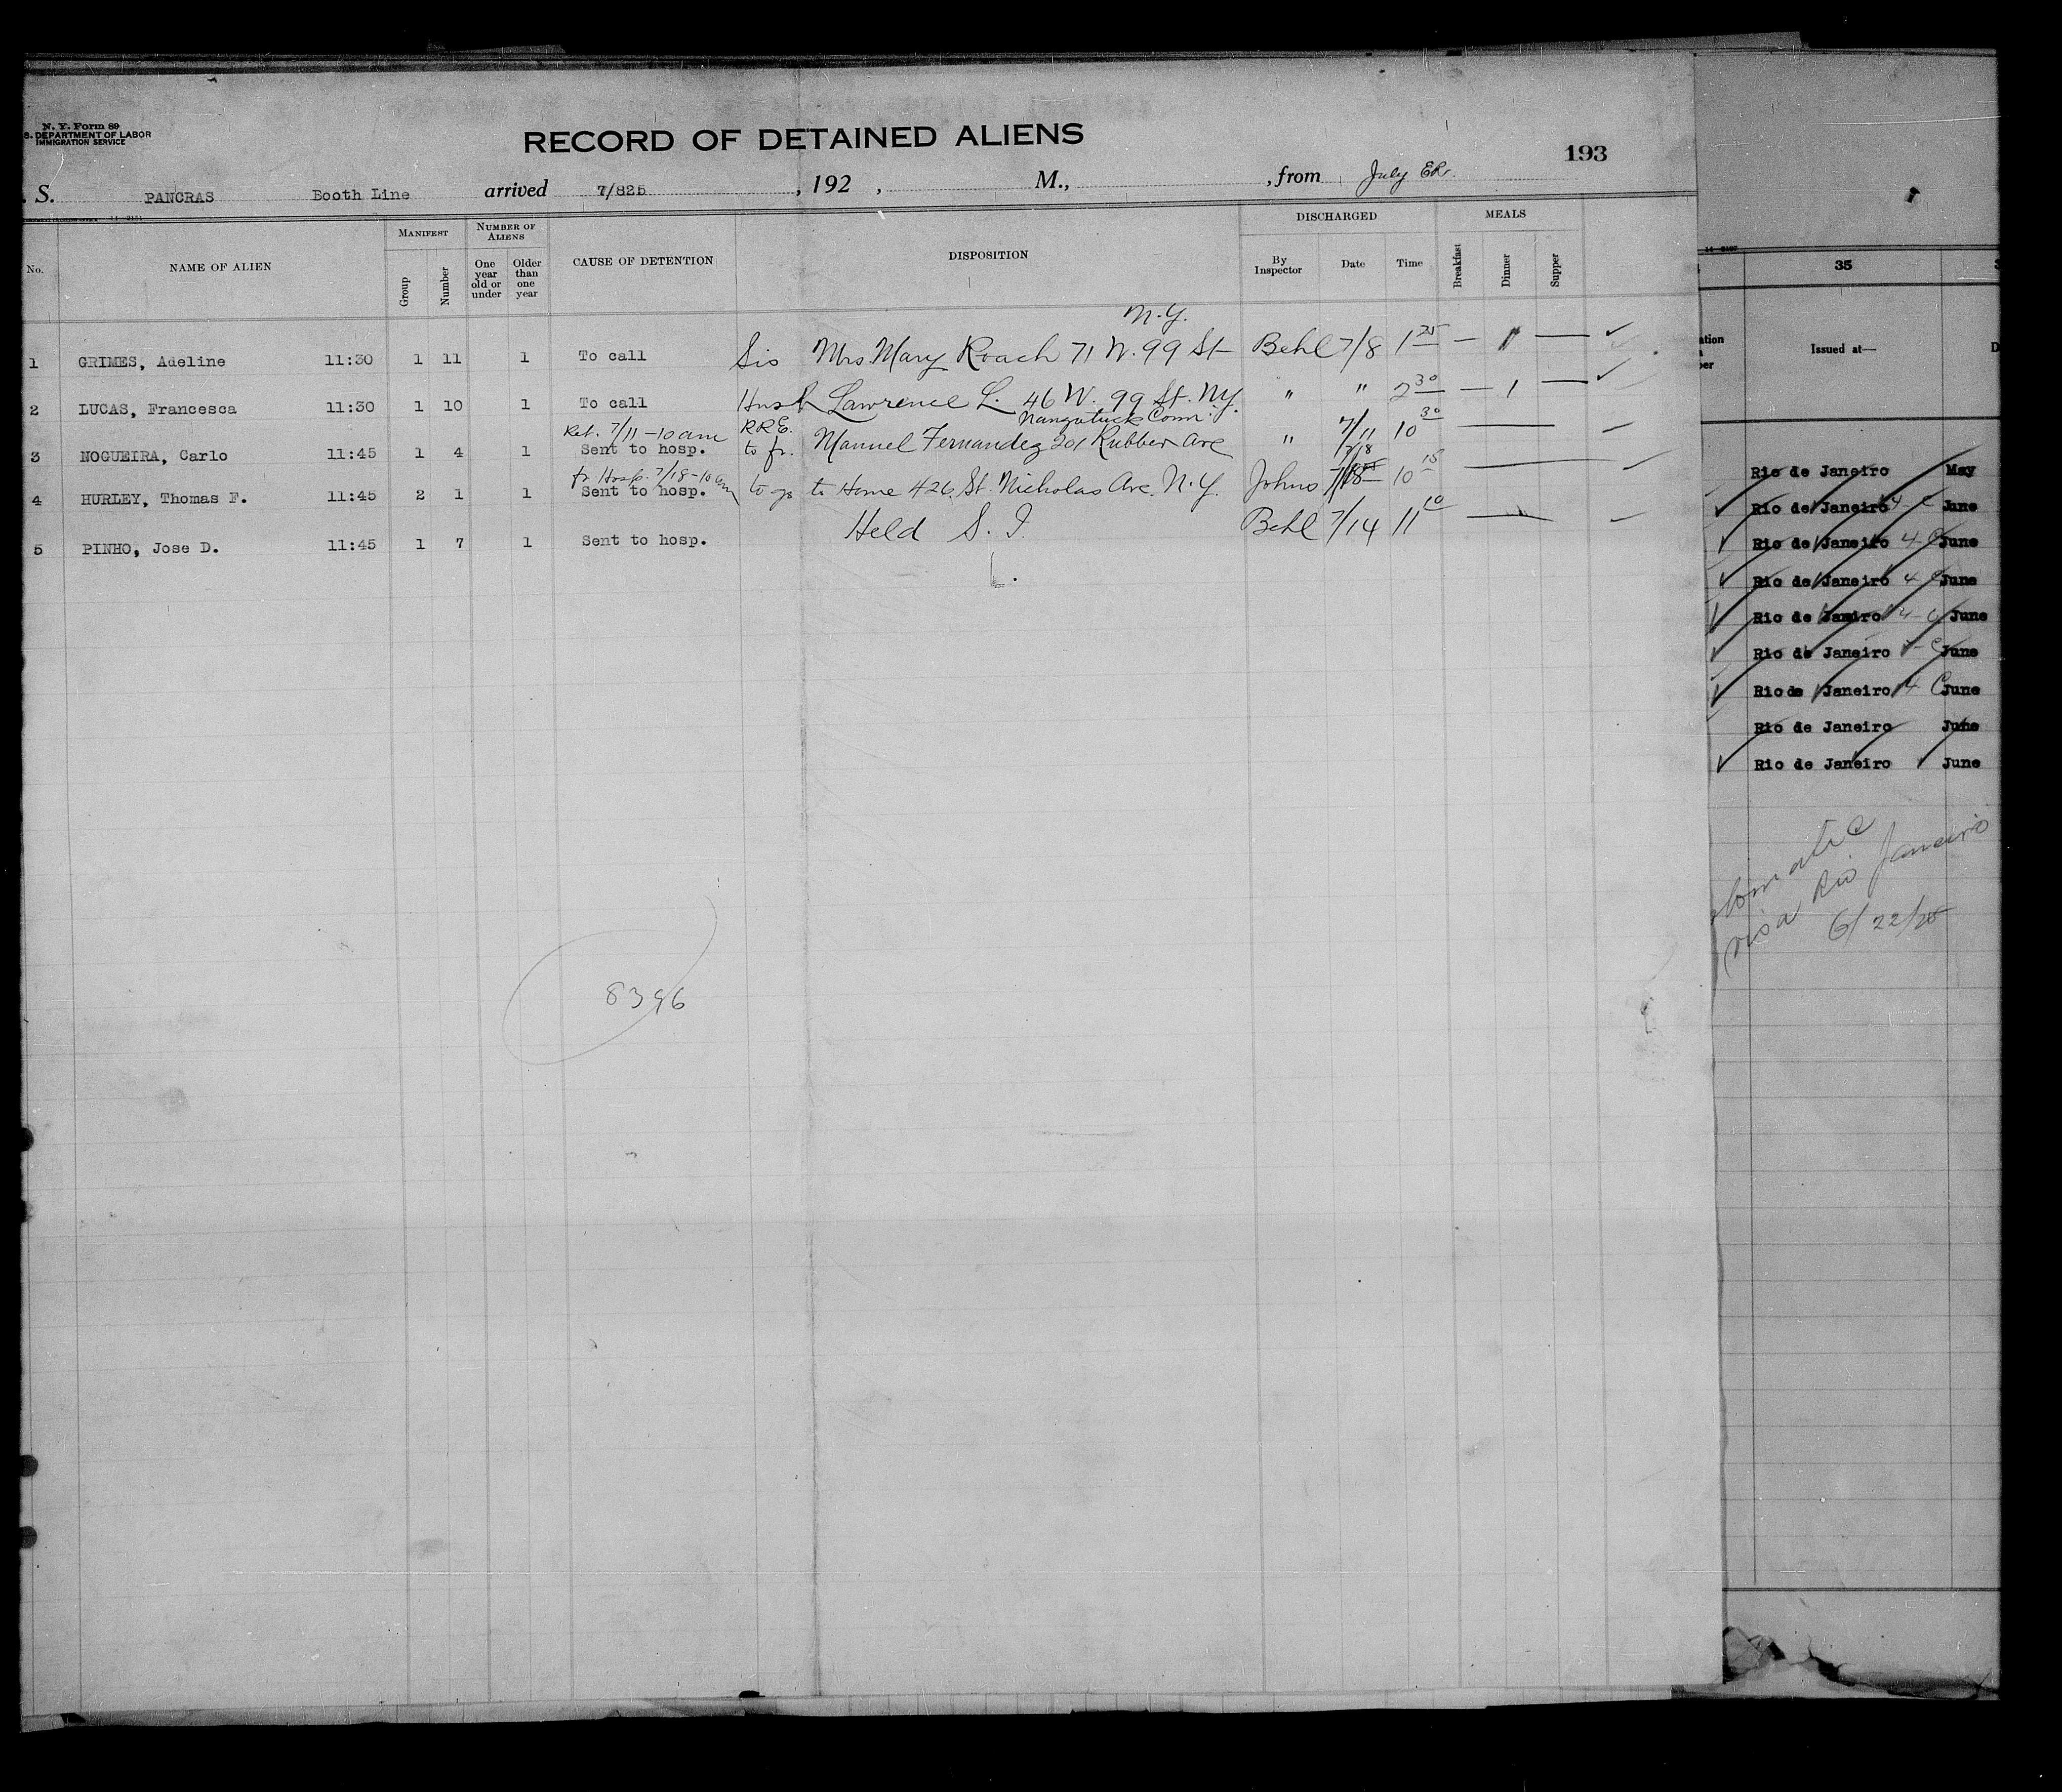 N. Y. Form 89
S. DEPARTMENT OF LABOR
IMMIGRATION SERVICE
RECORD OF DETAINED ALIENS
193
S. PANCRAS Booth Line arrived 7/825, 192 , M., , from July ER.
14-2151
No. NAME OF ALIEN MANIFEST Group Number NUMBER OF ALIENS One year old or under Older than one year CAUSE OF DETENTION DISPOSITION DISCHARGED By Inspector Date Time MEALS Breakfast Dinner Supper
N.Y.
1 GRIMES, Adeline 11:30 1 11 1 To call Sis Mrs. Mary Roach 71 W. 99 St Behl 7/8 1 25 — 1 — ✓
2 LUCAS, Francesca 11:30 1 10 1 To call Husb Lawrence L. 46 W. 99 St. N.Y. " " 2 30 — 1 — ✓
Ret. 7/11 - 10 am R.R.E. Naugatuck Conn.
3 NOGUEIRA, Carlo 11:45 1 4 1 Sent to hosp. to fr. Manuel Fernandez 201 Rubber Ave " 7/11 10 30 —
fr Hosp. 7/18 - 10 am 7/18
4 HURLEY, Thomas F. 11:45 2 1 1 Sent to hosp. to go to Home 426 St. Nicholas Ave. N.Y. Johns 10 15 —
5 PINHO, Jose D. 11:45 1 7 1 Sent to hosp. Held S. I. Behl 7/14 11 10 —
8396
14-2167
35
Issued at—
Rio de Janeiro May
Rio de Janeiro 4-C June
Rio de Janeiro 4-C June
Rio de Janeiro 4-C June
Rio de Jamiro 4-C June
Rio de Janeiro June
Rio de Janeiro 4 C June
Rio de Janeiro June
Rio de Janeiro June
visa Rio Janeiro
6/22/25